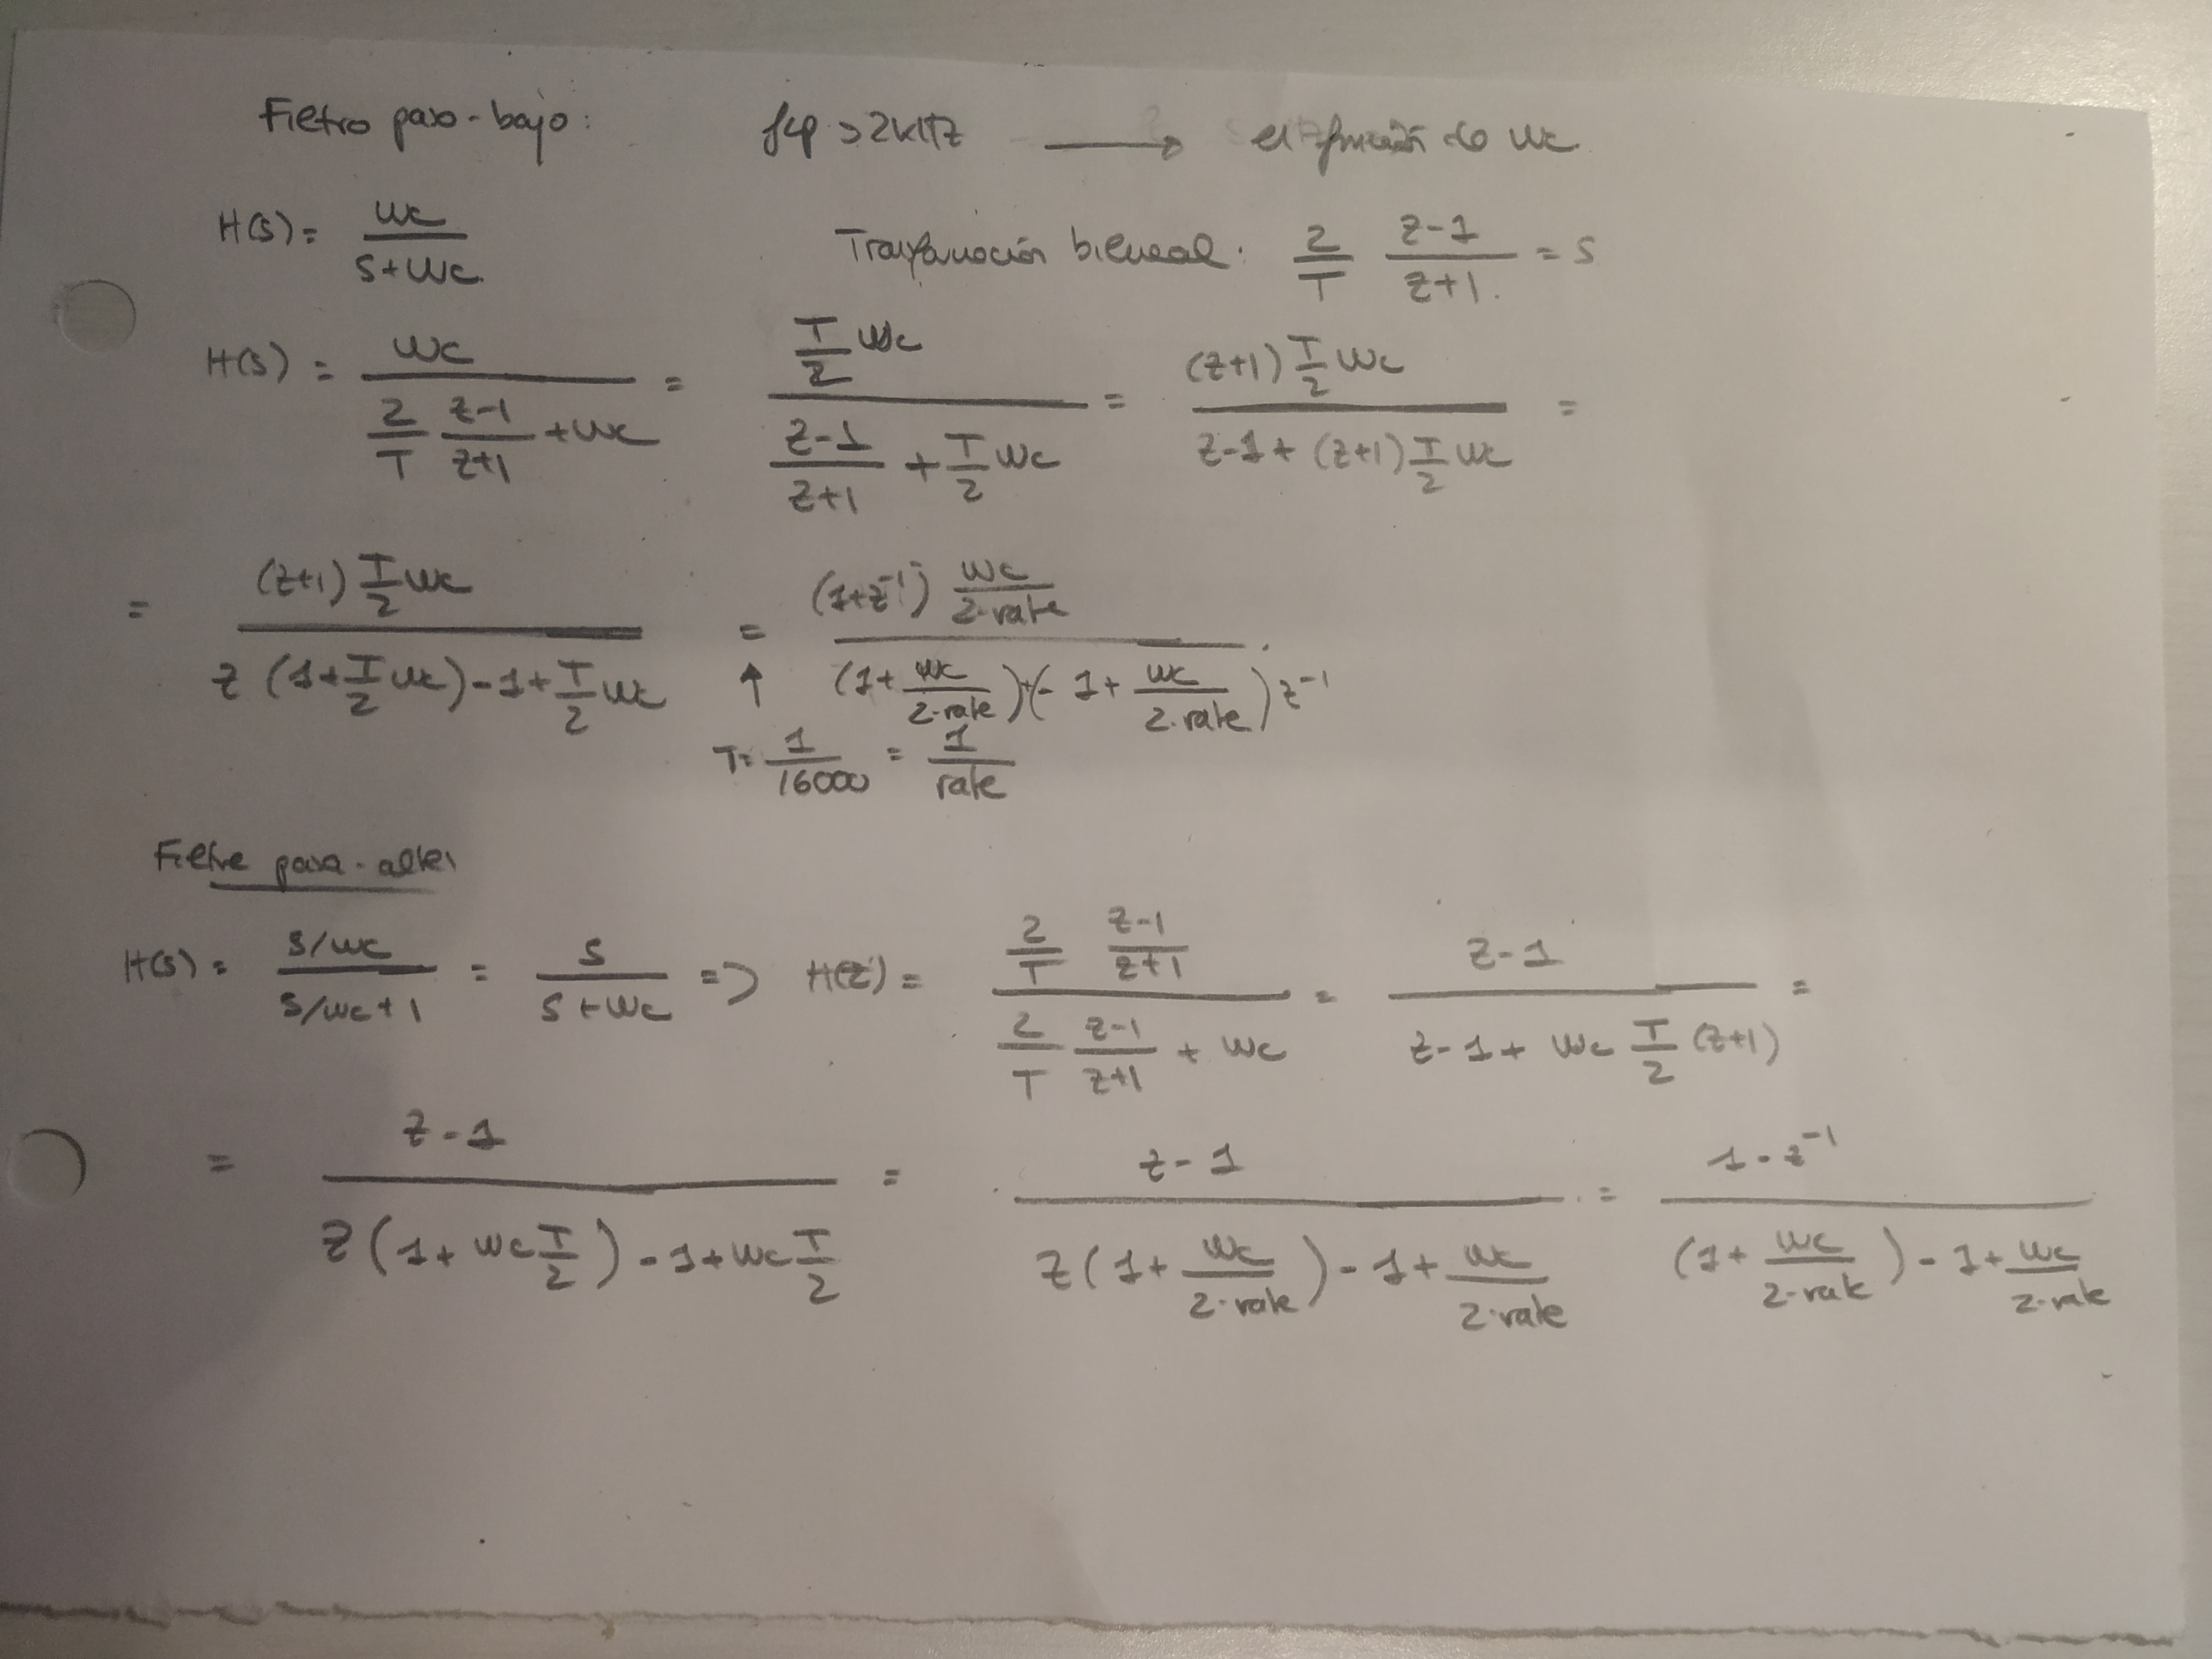 Filtro paso-bajo: fcp >2kHz → en función de wc
H(s) = wc / (s+wc) Transformación bilineal: 2/T (z-1)/(z+1) = s
H(s) = wc / (2/T (z-1)/(z+1) + wc) = (T/2 wc) / ((z-1)/(z+1) + T/2 wc) = ((z+1) T/2 wc) / (z-1+(z+1) T/2 wc) =
= ((z+1) T/2 wc) / (z (1+T/2 wc)-1+T/2 wc) = ((1+z⁻¹) wc/(2·rate)) / ((1+wc/(2·rate))+(-1+wc/(2·rate)) z⁻¹)
↑
T= 1/16000 = 1/rate
Filtro paso-altos
H(s) = (s/wc) / (s/wc+1) = s / (s+wc) => H(z) = (2/T (z-1)/(z+1)) / (2/T (z-1)/(z+1) + wc) = (z-1) / (z-1+ wc T/2 (z+1)) =
= (z-1) / (z(1+wc T/2)-1+wc T/2) = (z-1) / (z(1+wc/(2·rate))-1+wc/(2·rate)) = (1-z⁻¹) / ((1+wc/(2·rate))-1+wc/(2·rate))